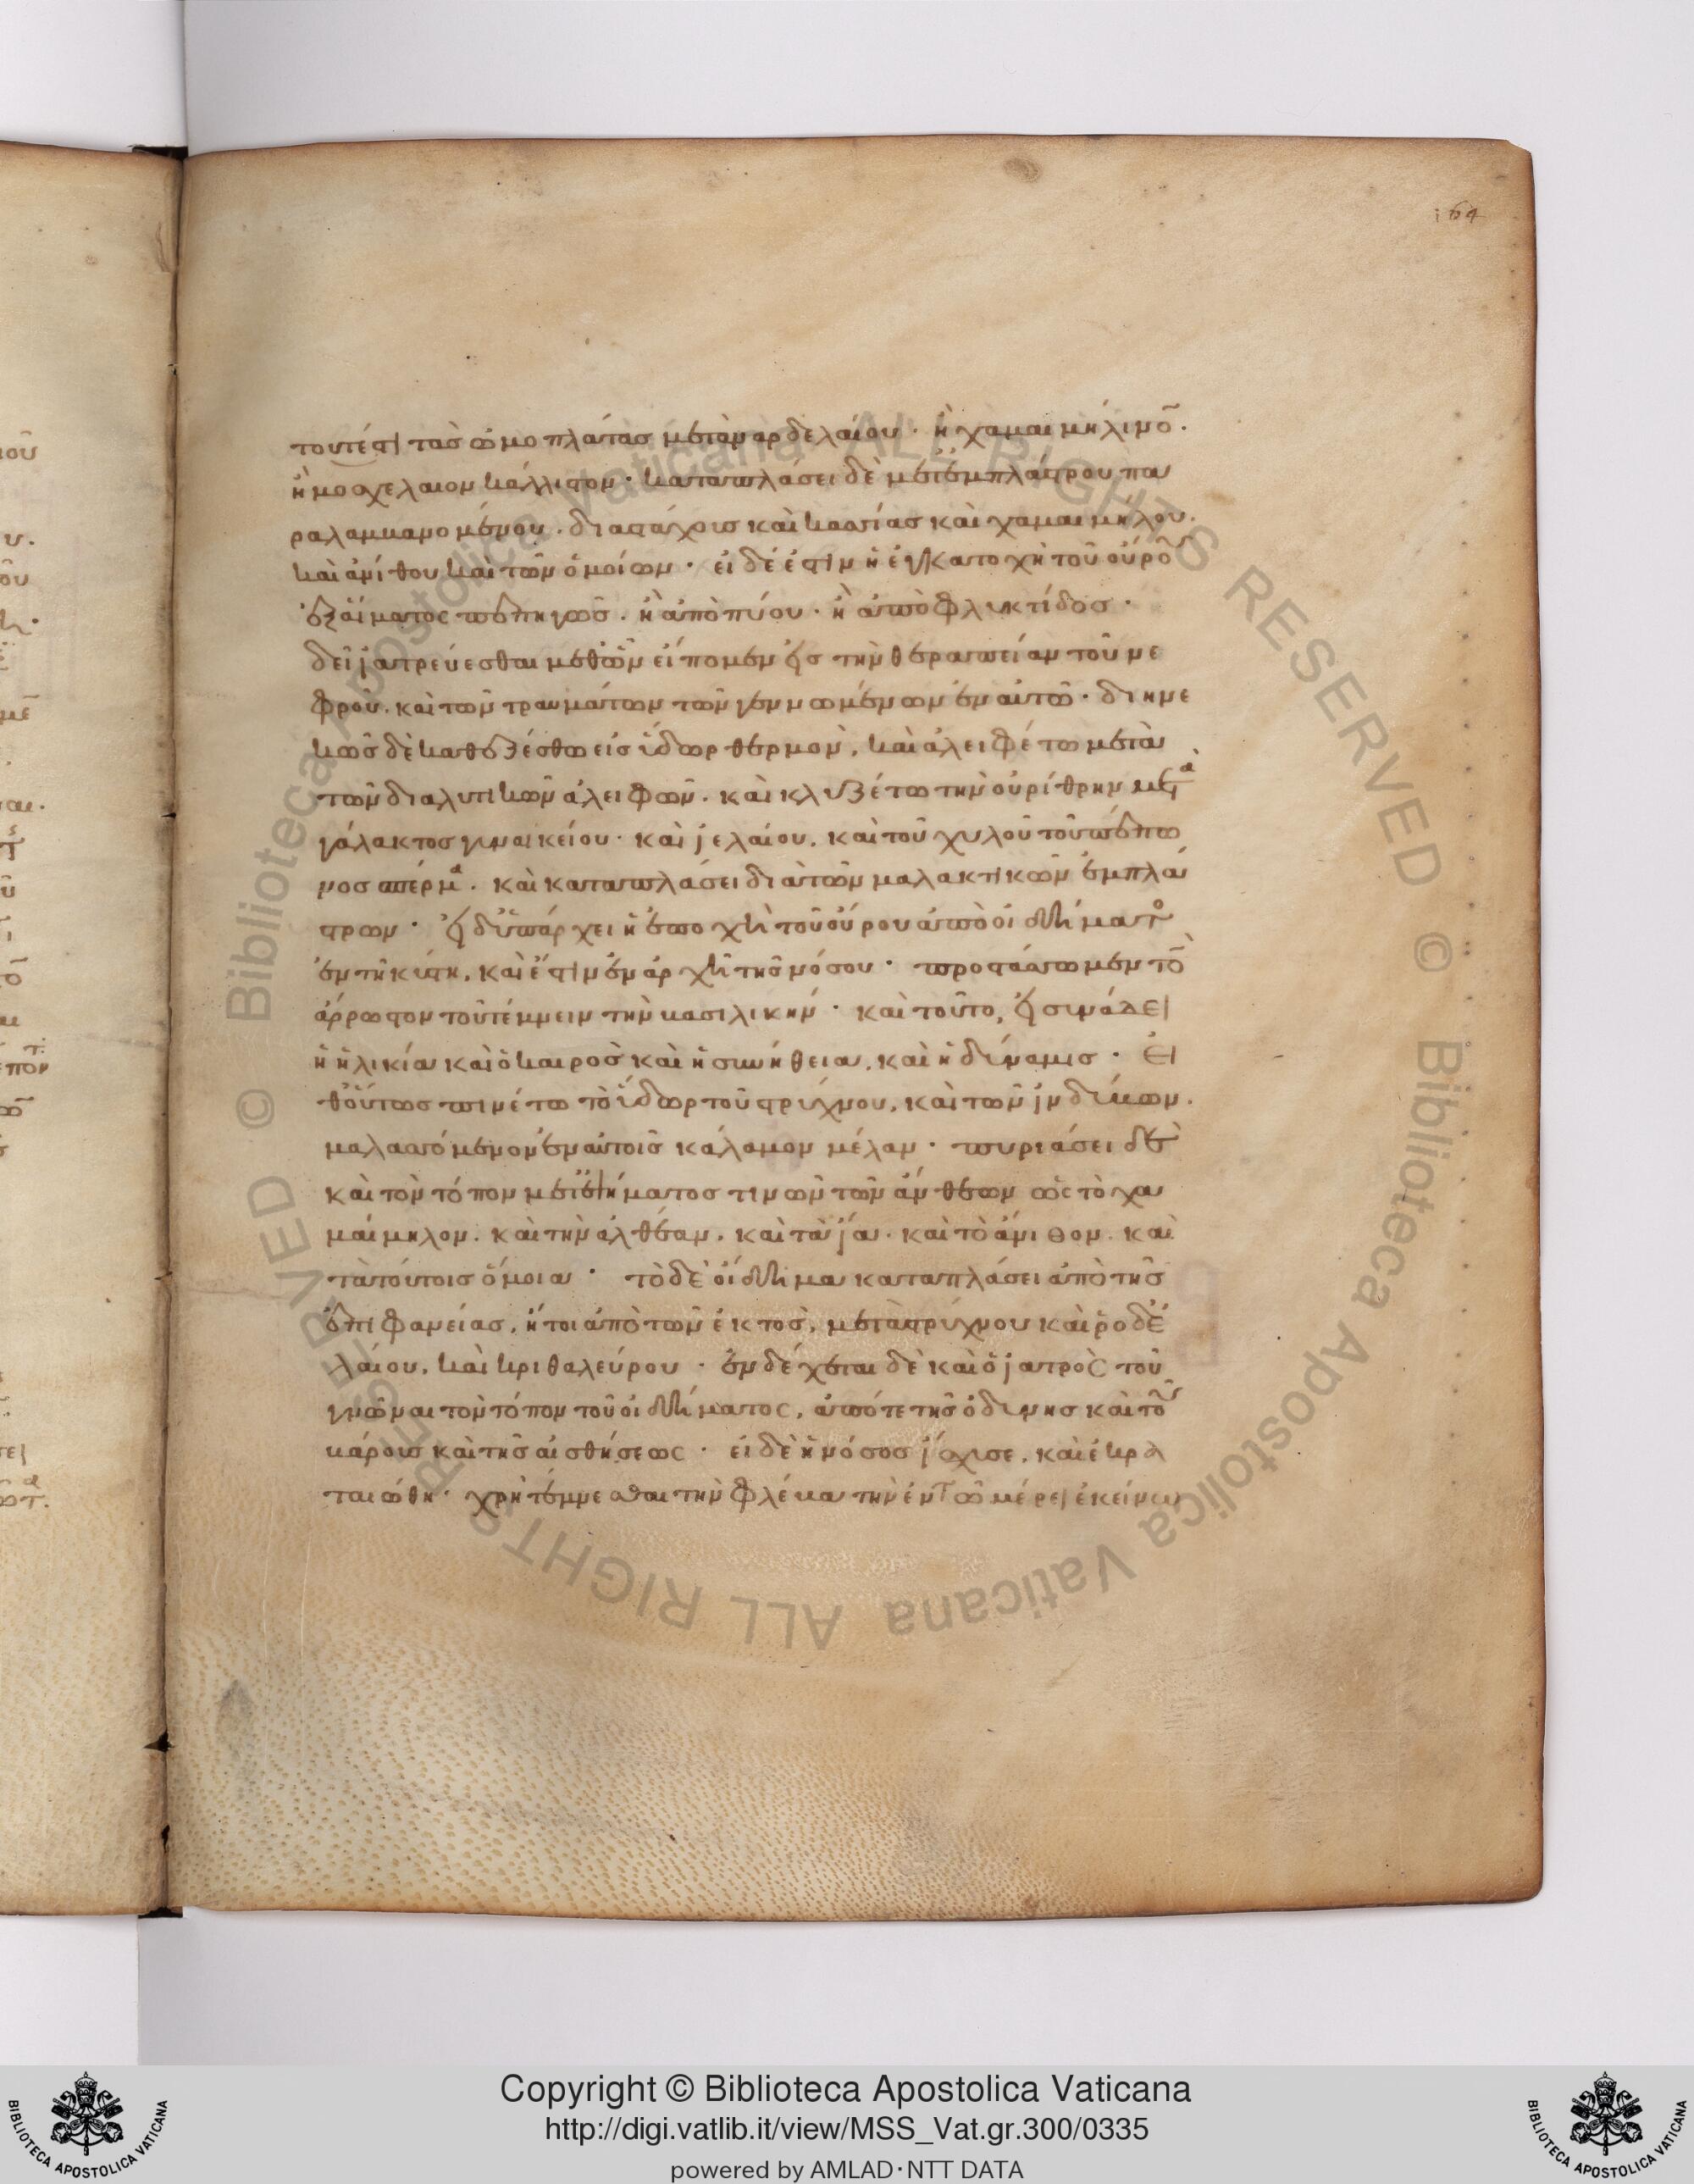 164
τουτέστι τὰς ὠμοπλάτας μετὰ ναρδελαίου · ἢ χαμαιμηλίνου.
ἢ μοσχελαιον κάλλιστον · καταπλάσει δὲ μετ' ἐμπλάστρου πα
ραλαμβανομένου. διαστάχους καὶ κασσίας καὶ χαμαιμήλου.
καὶ ἀνίθου καὶ τῶν ὁμοίων · εἰ δέ ἐστιν ἡ ἐγκατοχὴ τοῦ οὔρου
ἐξ αἵματος πεπηγῶς. ἢ ἀπὸ πύου · ἢ ἀπὸ φλυκτίδος ·
δεῖ ἰατρεύεσθαι μεθ' ὧν εἴπομεν εἰς τὴν θεραπείαν τοῦ νε
φροῦ. καὶ τῶν τραυμάτων τῶν γεννωμένων ἐν αὐτῶ · διηνε
κῶς δὲ καθεζέσθω εἰς ὕδωρ θερμὸν, καὶ ἀλειφέτω μετὰ
τῶν διαλυτικῶν ἀλειφῶν. καὶ κλυζέτω τὴν οὐρίθρην μετὰ
γάλακτος γυναικείου · καὶ ἐλαίου, καὶ τοῦ χυλοῦ τοῦ πέπω
νος σπέρμα. καὶ καταπλάσει διὰ τῶν μαλακτικῶν ἐμπλά
στρων · εἰ δ' ὑπάρχει ἡ ἐποχὴ τοῦ οὔρου ἀπὸ οἰδήματος
ἐν τῆ κύστη, καὶ ἔστιν ἐν ἀρχῆ τῆς νόσου · προστάσσω μὲν τὸν
ἄρρωστον τοῦ τέμνειν τὴν βασιλικήν · καὶ τοῦτο, εἰ συνάδει
ἡ ἡλικία καὶ ὁ καιρὸς καὶ ἡ συνήθεια, καὶ ἡ δύναμις · Εἶ
θ' οὕτως πινέτω τὸ ὕδωρ τοῦ στρύχνου, καὶ τῶν ἰνδύβων.
μαλασσόμενον ἐν αὐτοῖς κάλαμον μέλαν · πυριάσει δὲ
καὶ τὸν τόπον μετ' ἑψήματος τινῶν τῶν ἀνθέων ὡς τὸ χα
μαίμηλον. καὶ τὴν ἀλθέαν. καὶ τὰ ἴα. καὶ τὸ ἄνιθον. καὶ
τὰ τούτοις ὅμοια · τὸ δὲ οἴδημα καταπλάσει ἀπὸ τῆς
ἐπιφανείας, ἤτοι ἀπὸ τῶν ἐκτὸς, μετὰ στρύχνου καὶ ῥοδε
λαίου, καὶ κριθαλεύρου · ἐνδέχεται δὲ καὶ ὁ ἰατρὸς τοῦ
γνῶναι τὸν τόπον τοῦ οἰδήματος, ἀπό τε τῆς ὀδύνης καὶ τοῦ
βάρους καὶ τῆς αἰσθήσεως · εἰ δὲ ἡ νόσος ἴσχυσε, καὶ ἐκρα
ταιώθη · χρὴ τέμνεσθαι τὴν φλέβα τὴν ἐν τῶ μέρει ἐκείνω
Copyright © Biblioteca Apostolica Vaticana
http://digi.vatlib.it/view/MSS_Vat.gr.300/0335
powered by AMLAD·NTT DATA